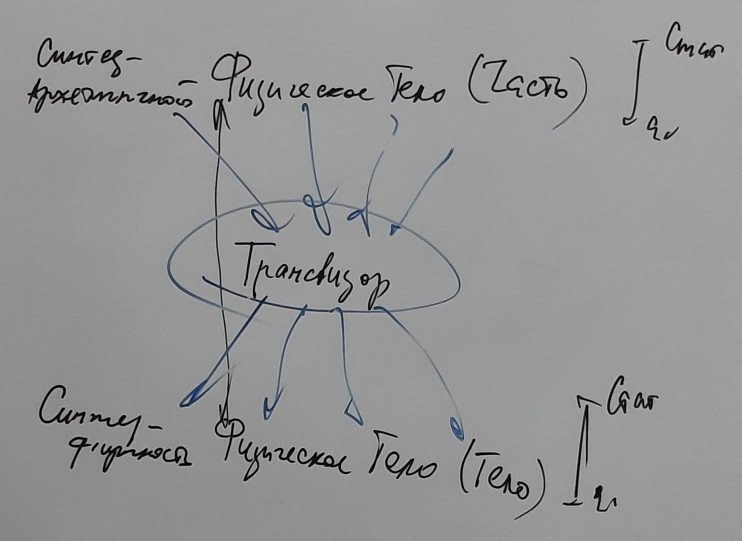 Синтез-
Архетипичной Физическое Тело (Часть)
Стат
Трансвизор
Стат
Синтез-
физичность Физическое Тело (Тело)